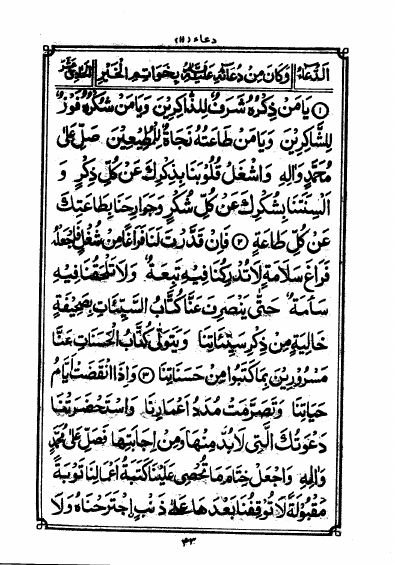 دعاء (۱۱)
الدُّعَاءُ وَكَانَ مِنْ دُعَائِهِ عَلَيْهِ بِخَوَاتِمِ الْخَيْرِ
① يَا مَنْ ذِكْرُهُ شَرَفٌ لِلذَّاكِرِينَ وَيَا مَنْ شُكْرُهُ فَوْزٌ
لِلشَّاكِرِينَ وَيَا مَنْ طَاعَتُهُ نَجَاةٌ لِلْمُطِيعِينَ صَلِّ عَلَى
مُحَمَّدٍ وَآلِهِ وَاشْغَلْ قُلُوبَنَا بِذِكْرِكَ عَنْ كُلِّ ذِكْرٍ وَ
أَلْسِنَتَنَا بِشُكْرِكَ عَنْ كُلِّ شُكْرٍ وَجَوَارِحَنَا بِطَاعَتِكَ
عَنْ كُلِّ طَاعَةٍ ② فَإِنْ قَدَّرْتَ لَنَا فَرَاغًا مِنْ شُغْلٍ فَاجْعَلْهُ
فَرَاغَ سَلَامَةٍ لَا تُدْرِكُنَا فِيهِ تَبِعَةٌ وَلَا تَلْحَقُنَا فِيهِ
سَأْمَةٌ حَتَّى يَنْصَرِفَ عَنَّا كُتَّابُ السَّيِّئَاتِ بِصَحِيفَةٍ
خَالِيَةٍ مِنْ ذِكْرِ سَيِّئَاتِنَا وَيَتَوَلَّى كُتَّابُ الْحَسَنَاتِ عَنَّا
مَسْرُورِينَ بِمَا كَتَبُوا مِنْ حَسَنَاتِنَا ③ وَإِذَا انْقَضَتْ أَيَّامُ
حَيَاتِنَا وَتَصَرَّمَتْ مُدَدُ أَعْمَارِنَا وَاسْتَحْضَرَتْنَا
دَعْوَتُكَ الَّتِي لَا بُدَّ مِنْهَا وَمِنْ إِجَابَتِهَا فَصَلِّ عَلَى مُحَمَّدٍ
وَآلِهِ وَاجْعَلْ خِتَامَ مَا تُحْصِي عَلَيْنَا كَتَبَةُ أَعْمَالِنَا تَوْبَةً
مَقْبُولَةً لَا تُوقِفُنَا بَعْدَهَا عَلَى ذَنْبٍ اجْتَرَحْنَاهُ وَلَا
۴۳